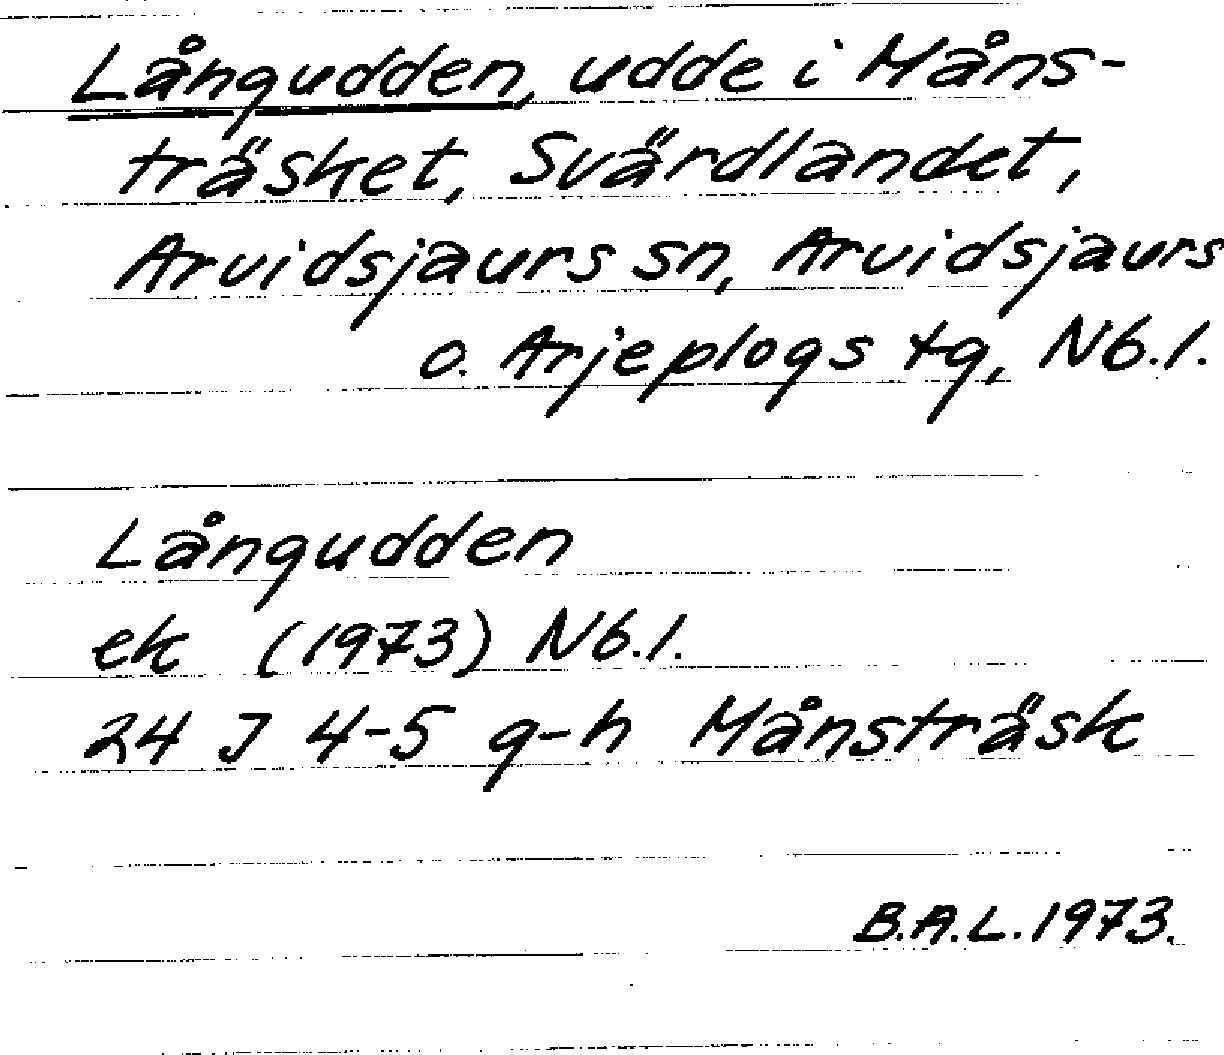 Långudden, udde i Måns-
träsket, Svärdlandet,
Arvidsjaurs sn, Arvidsjaurs
o. Arjeplogs tg, Nb.l.
Långudden
ek (1973) Nb.l.
24 J 4-5 g-h Månsträsk
B.A.L. 1973.